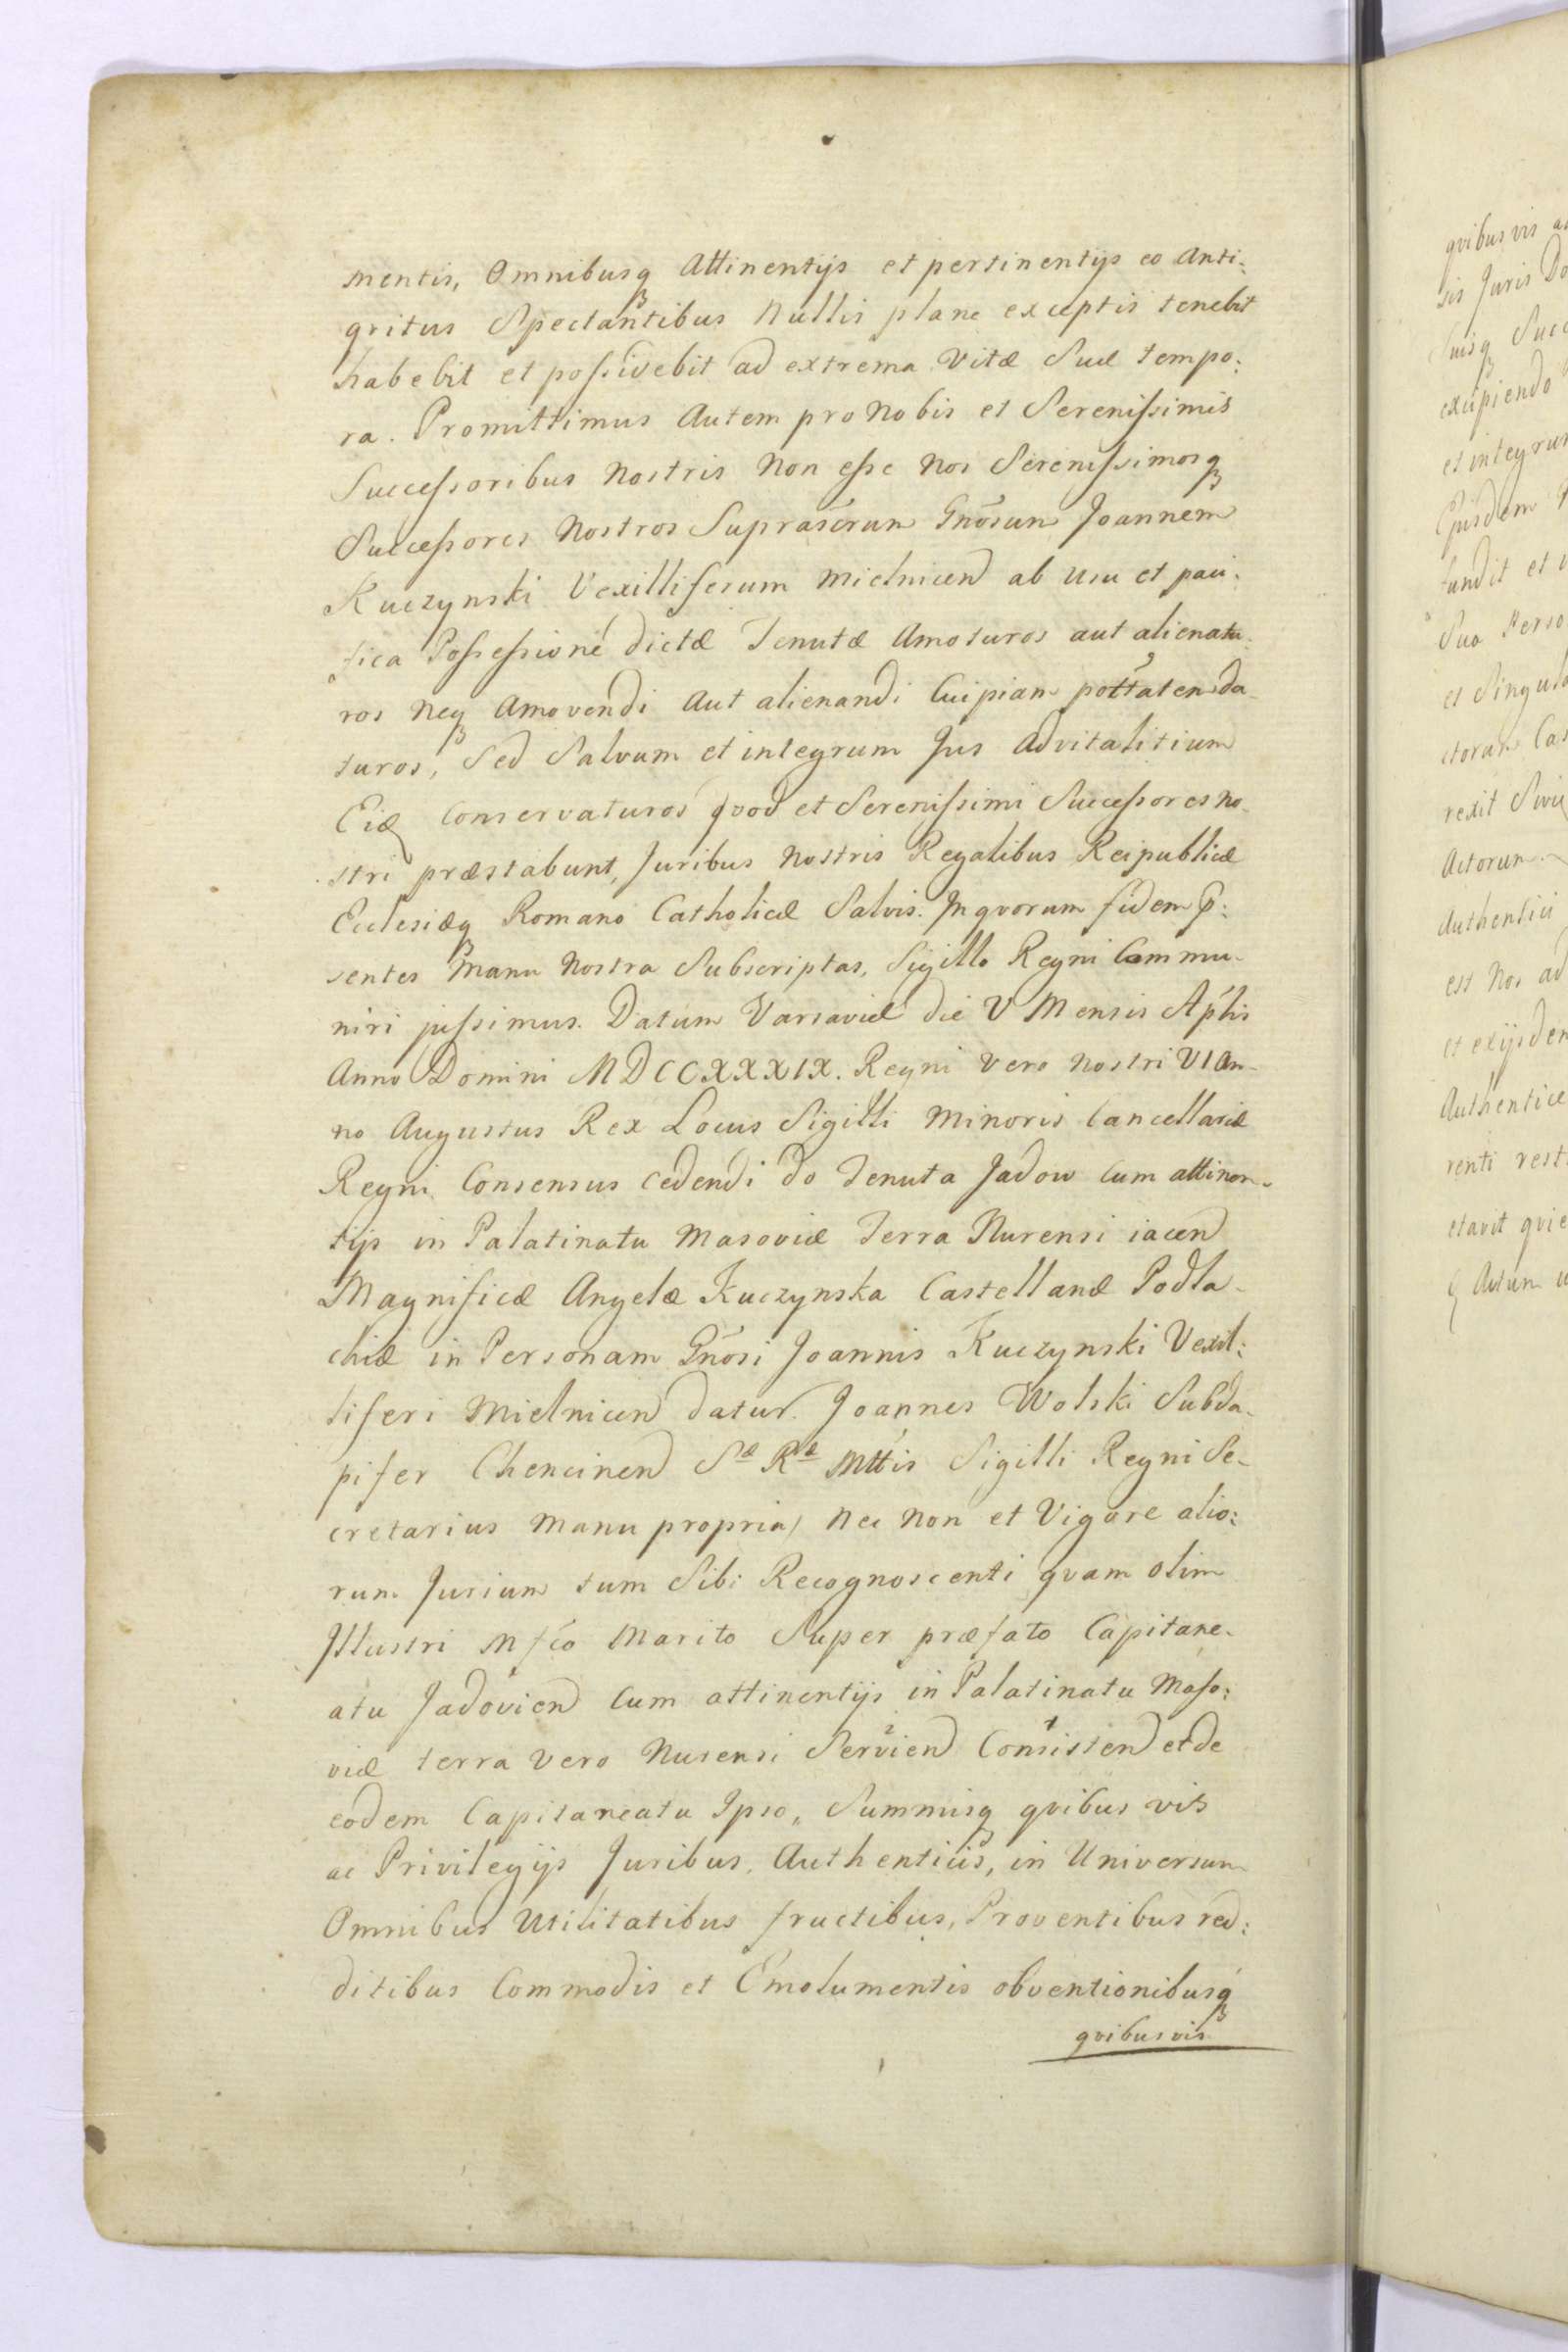 mentis, Omnibusq Attinentijs et pertinentijs eo Anti:
qvitus Spectantibus Nullis plane exceptis tenebit
habebit et possidebit ad extrema Vitæ Suæ tempo:
ra. Promittimus Autem pro Nobis et Serenissimis
Successoribus Nostris Non esse Nos Serenissimosq
Successores Nostros Suprascrum Gnosum Joannem
Kuczynski Vexilliferum Mielnicen ab Usu et paci.
fica Possessione dictæ Tenutæ Amoturos aut alienatu.
ros Neq Amovendi Aut alienandi Cuipiam pottatem da-
turos, Sed Salvum et integrum Jus Advitalitium
Eid Conservaturos Qvod et Serenissimi Successores no-
stri præstabunt, Juribus Nostris Regalibus Reipublicæ
Ecclesiæq Romano Catholicæ Salvis. In qvorum fidem p:
sentes Manu Nostra Subscriptas, Sigillo Regni Commu-
niri jussimus. Datum Varsaviæ die V Mensis Aplis
Anno Domini MDCCXXXIX. Regni Vero Nostri VI An-
no Augustus Rex Locus Sigilli Minoris Cancellariæ
Regni Consensus cedendi do Tenuta Jadow Cum attinen-
tijs in Palatinatu Masoviæ Terra Nurensi iacen
Magnificæ Angelæ Kuczynska Castellanæ Podla-
chiæ in Personam Gnosi Joannis Kuczynski Vexil:
liferi Mielnicen datur. Joannes Wolski Subda-
pifer Chencinen Sæ Ræ Mttis Sigilli Regni Se-
cretarius Manu propria) Nec Non et Vigore alio:
rum Jurium tum Sibi Recognoscenti qvam olim
Illustri Mfco Marito Super præfato Capitane-
atu Jadovien Cum attinentijs in Palatinatu Maso:
viæ terra Vero Nurensi Servien Consisten et de
eodem Capitaneatu Ipso, Summisq qvibus vis
ac Privilegijs Juribus, Authenticis, in Universum
Omnibus Utilitatibus fructibus, Proventibus red:
ditibus Commodis et Emolumentis obventionibusq
qvibusvis
qvibus vis
sis Juris
Suisq
excipiendo
Ejusdem
et
Sua
et
rexit
Actorum
Authentici
est Nos ad
Authenticæ
renti